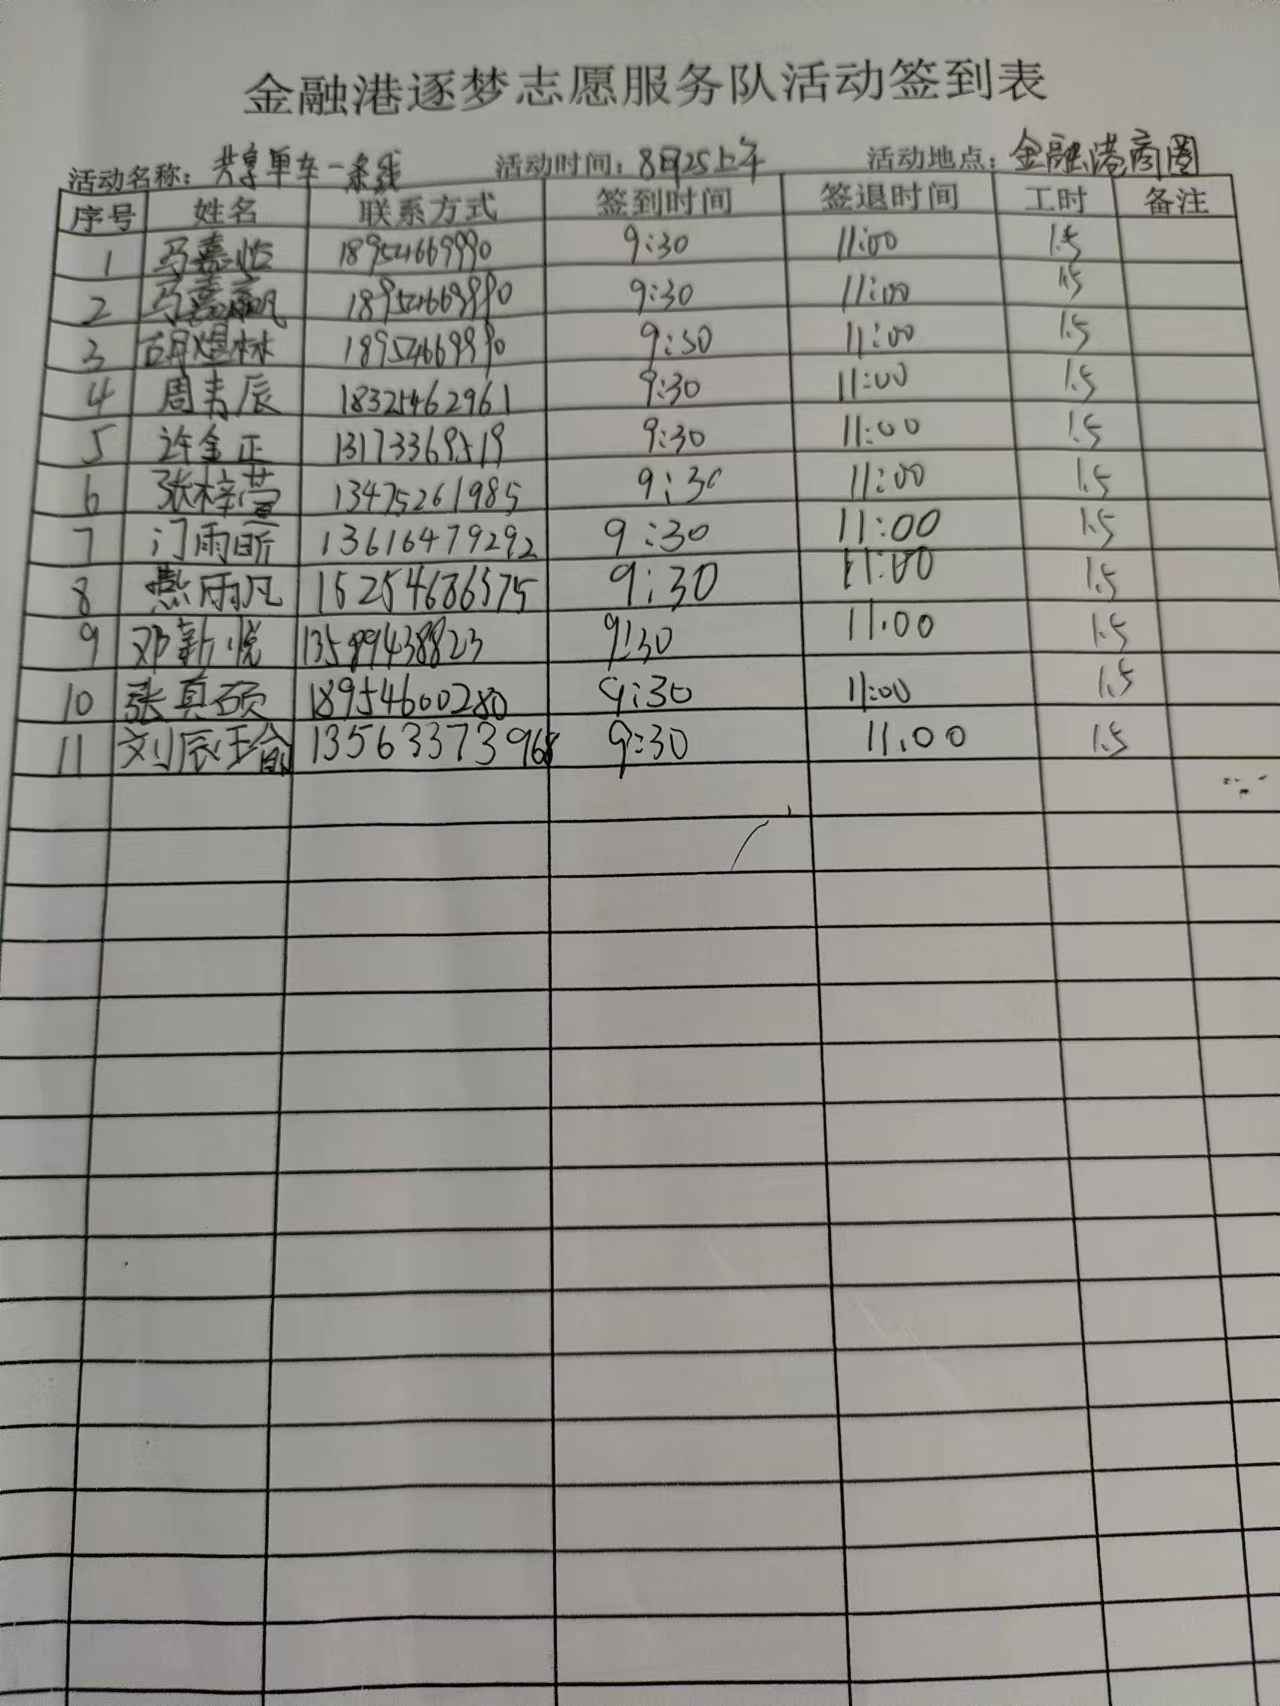 金融港逐梦志愿服务队活动签到表
活动名称: 共享单车一条线 活动时间: 8月25上午 活动地点: 金融港商圈
序号 姓名 联系方式 签到时间 签退时间 工时 备注
1 马嘉怡 18954669990 9:30 11:00 1.5
2 马嘉 18954669990 9:30 11:00 1.5
3 胡煜林 18954669990 9:30 11:00 1.5
4 周青辰 18325462961 9:30 11:00 1.5
5 许金正 13173369519 9:30 11:00 1.5
6 张梓萱 13475261985 9:30 11:00 1.5
7 门雨昕 13616479292 9:30 11:00 1.5
8 燕雨凡 15254686575 9:30 11:00 1.5
9 邓新悦 13589438823 9:30 11:00 1.5
10 张真硕 18954600280 9:30 11:00 1.5
11 刘辰瑜 13563373968 9:30 11.00 1.5